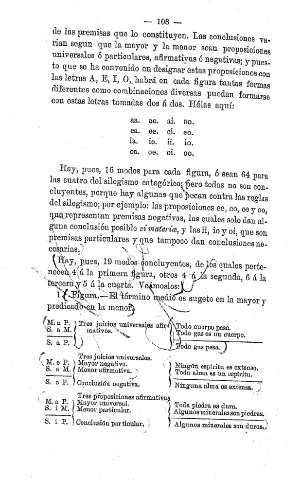 — 108 —
de las premisas que lo constituyen. Las conclusiones va-
rian segun que la mayor y la menor sean proposiciones
universales ó particulares, afirmativas ó negativas; y pues-
to que se ha convenido en designar estas proposiciones con
las letras A, E, I, O, habrá en cada figura tantas formas
diferentes como combinaciones diversas puedan formarse
con estas letras tomadas dos á dos. Hélas aquí:
aa. ae. ai. ao.
ea. ee. ei. eo.
ia. ie. ii. io.
oa. oe. oi. oo.
Hay, pues, 16 modos para cada figura, ó sean 64 para
las cuatro del silogismo categórico; pero todos no son con-
cluyentes, porque hay algunas que pecan contra las reglas
del silogismo; por ejemplo: las proposiciones ee, eo, oe y oo,
que representan premisas negativas, las cuales solo dan al-
guna conclusion posible vi materiæ, y las ii, io y oi, que son
premisas particulares y que tampoco dan conclusiones ne-
cesarias.
Hay, pues, 19 modos concluyentes, de los cuales perte-
necen 4 á la primera figura, otros 4 á la segunda, 6 á la
tercera y 5 á la cuarta. Veámoslos:
1.ª Figura.—El término medio es sugeto en la mayor y
predicado en la menor.
M. a P. Tres juicios universales afir- Todo cuerpo pesa.
S. a M. mativos. Todo gas es un cuerpo.
S. a P. Todo gas pesa.
Tres juicios universales.
M. e P. Mayor negativa. Ningún espíritu es extenso.
S. a M. Menor afirmativa. Todo alma es un espíritu.
S. e P. Conclusión negativa. Ninguna alma es extensa.
Tres proposiciones afirmativas
M. a P. Mayor universal. Toda piedra es dura.
S. i M. Menor particular. Algunos minerales son piedras.
S. i P. Conclusión particular. Algunos minerales son duros.